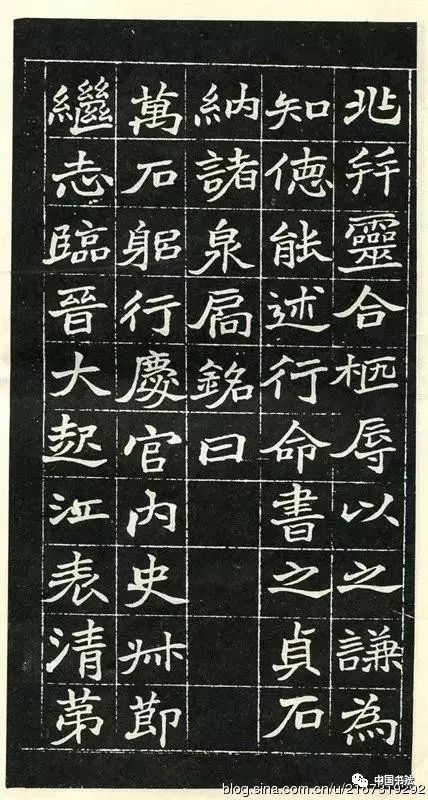 兆幷靈合柩辱以之謙為
知德能述行命書之貞石
納諸泉扃銘曰
萬石躬行慶官内史艸莭
繼志臨晉大起江表清苐
中国书法